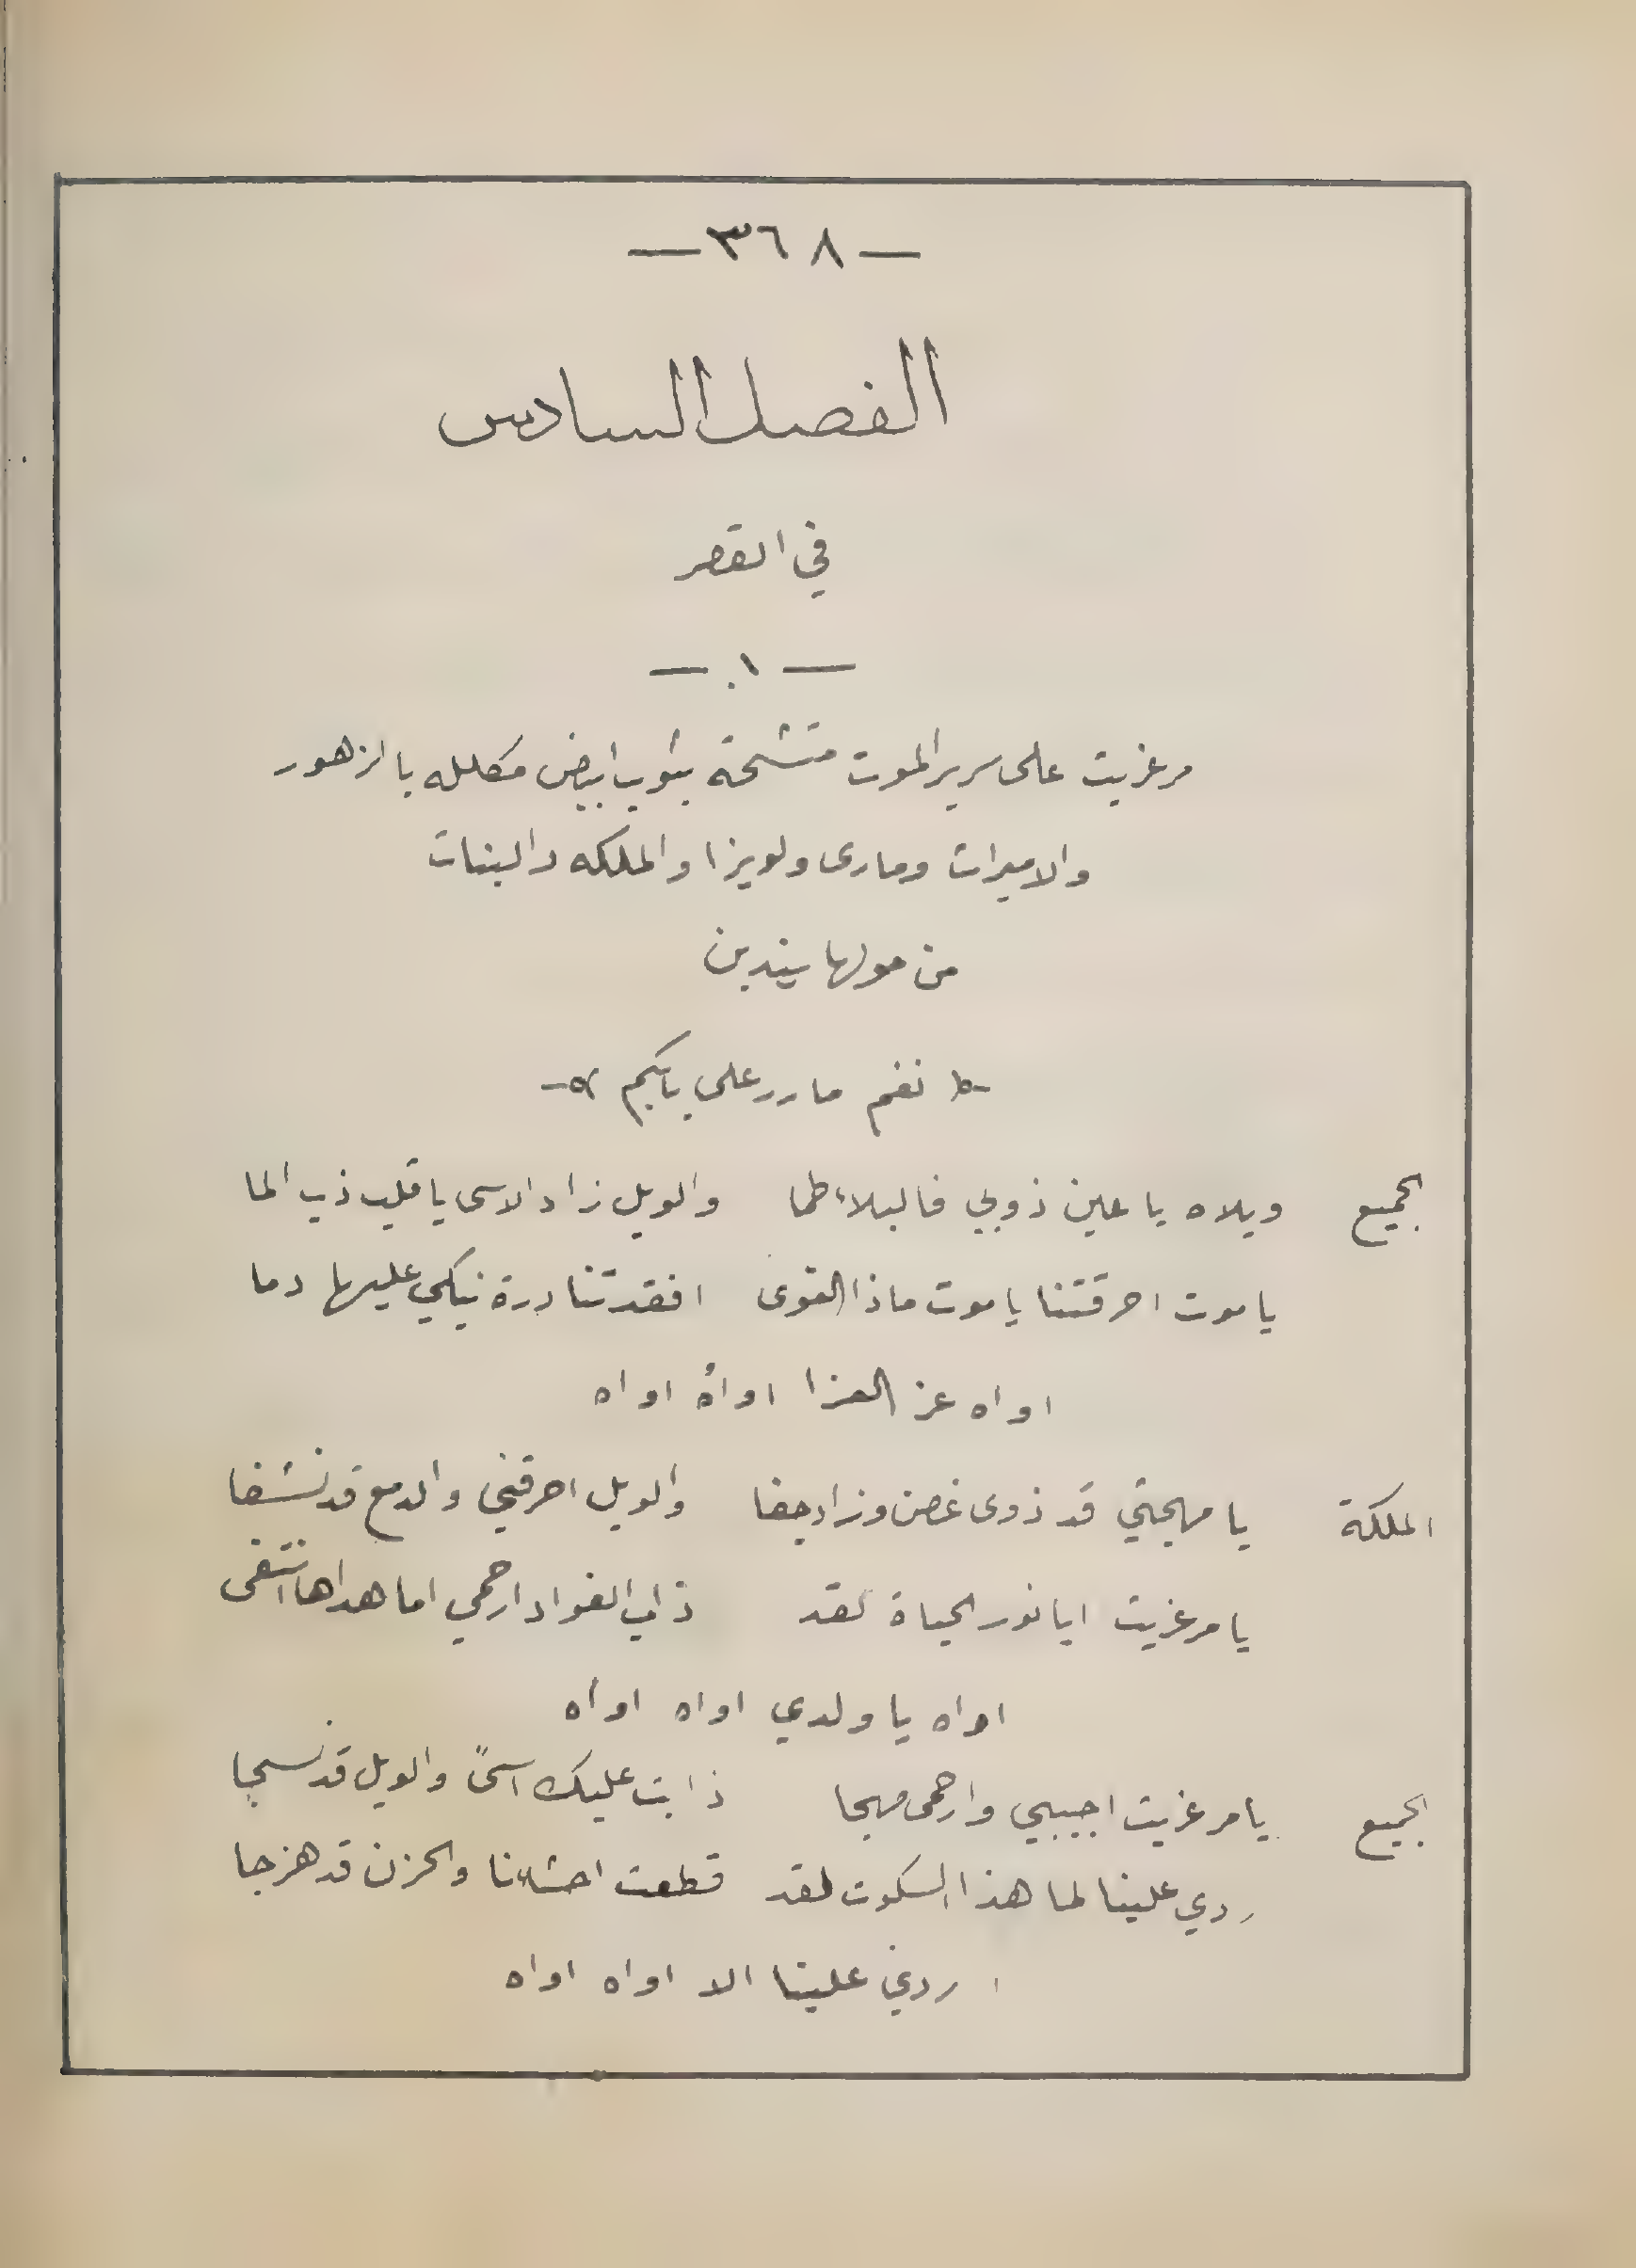 — ٣٦٨ —
الفصل السادس
في القصر
— ١. —
مرغريت على سرير الموت متشحة بثوب ابيض مكلله بالزهور
والاميرات ومارى ولويزا والملكه والبنات
من حولها يندبن
نغم ما رر على بابكم
الجميع ويلاه يا عين ذوبي فالبلاء طما والويل زاد الاسى يا قلب ذب الما
يا موت احرقتنا يا موت ماذا القوى افقدتنا درة نبكي عليها دما
اواه عز العزا اواهُ اواه
الملكة يا مهجتي قد ذوى غصن وزاد جفا والويل احرقني والدمع قد نشفا
يا مرغريت ايا نور الحياة لقد ذاب الفواد ارحمي اما هداها انتفى
اواه يا ولدي اواه اواه
الجميع يا مرغريت اجيبي وارحمى مهجا ذابت عليك اسىً والويل قد نسجا
ردي علينا لما هذا السكوت لقد قطعت احشاءنا والحزن قد هزجا
ردي علينا الا اواه اواه